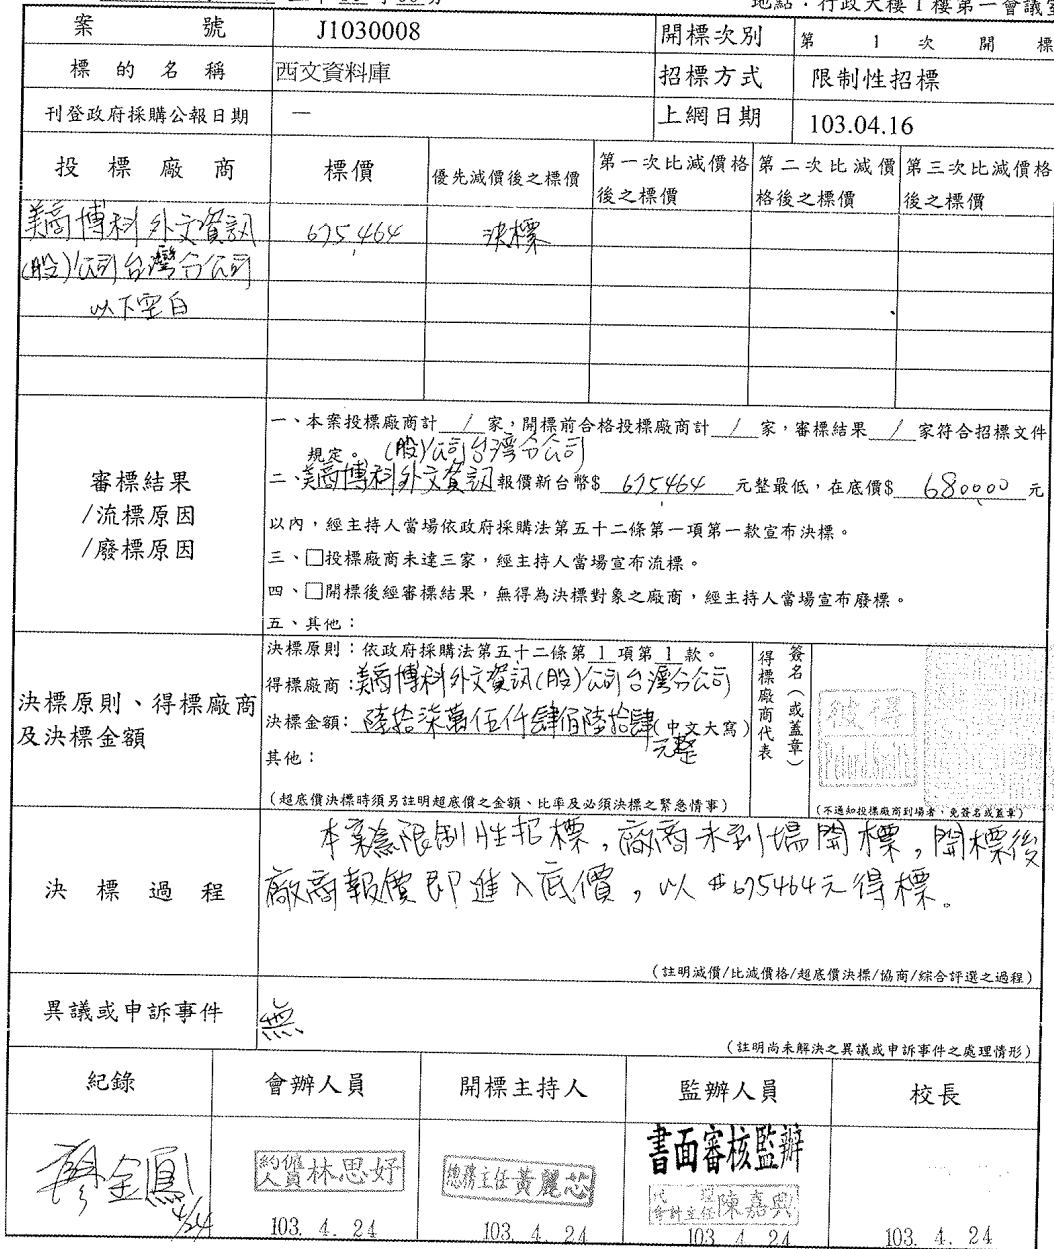 地點：行政大樓1樓第一會議室
案號 J1030008 開標次別 第 1 次 開 標
標的名稱 西文資料庫 招標方式 限制性招標
刊登政府採購公報日期 — 上網日期 103.04.16
投標廠商 標價 優先減價後之標價 第一次比減價格後之標價 第二次比減價格後之標價 第三次比減價格後之標價
美商博科外文資訊 675,464 決標
(股)公司台灣分公司
以下空白
審標結果
/流標原因
/廢標原因
一、本案投標廠商計 1 家，開標前合格投標廠商計 1 家，審標結果 1 家符合招標文件
規定。 (股)公司台灣分公司
二、美商博科外文資訊報價新台幣$ 675,464 元整最低，在底價$ 680000 元
以內，經主持人當場依政府採購法第五十二條第一項第一款宣布決標。
三、□投標廠商未達三家，經主持人當場宣布流標。
四、□開標後經審標結果，無得為決標對象之廠商，經主持人當場宣布廢標。
五、其他：
決標原則、得標廠商
及決標金額
決標原則：依政府採購法第五十二條第 1 項第 1 款。
得標廠商：美商博科外文資訊(股)公司台灣分公司
決標金額：陸拾柒萬伍仟肆佰陸拾肆(中文大寫)
元整
其他：
(超底價決標時須另註明超底價之金額、比率及必須決標之緊急情事)
得標廠商代表
簽名（或蓋章）
彼得
(不通知投標廠商到場者，免簽名或蓋章)
決標過程
本案為限制性招標，廠商未到場開標，開標後
廠商報價即進入底價，以#675464元得標。
(註明減價/比減價格/超底價決標/協商/綜合評選之過程)
異議或申訴事件 無
(註明尚未解決之異議或申訴事件之處理情形)
紀錄 會辦人員 開標主持人 監辦人員 校長
書面審核監辦
廖金鳳 約僱人員林思妤 總務主任黃麗芯 代理會計主任陳嘉興
4/24 103. 4. 24 103. 4. 24 103. 4. 24 103. 4. 24